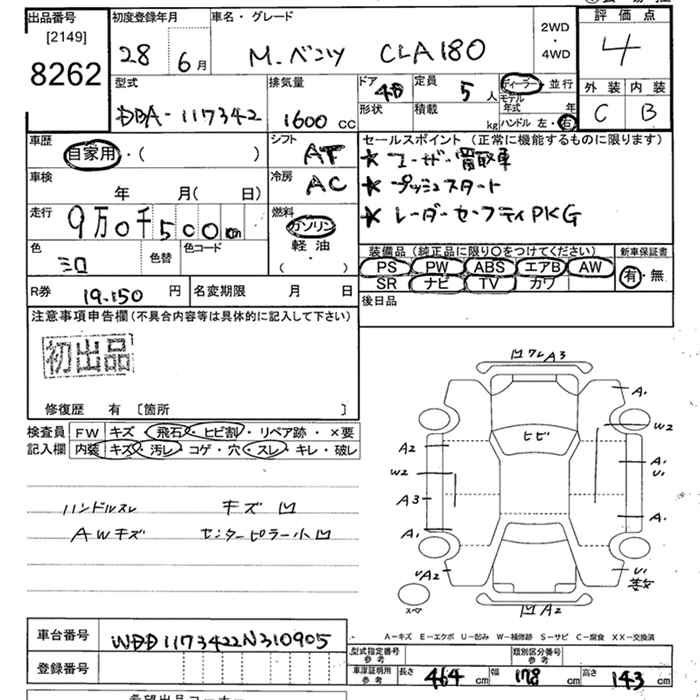 出品番号 初度登録年月 車名・グレード 2WD・4WD 評価点
[2149]
8262 28 6月 M.ベンツ CLA180 4
型式 排気量 ドア 4D 定員 5人 ディーラー 並行 外装 内装
DBA-117342 1600cc 形状 積載 kg モデル年式 年 ハンドル 左・右 C B
車歴 自家用・( ) シフト AT セールスポイント (正常に機能するものに限ります)
★ ユーザー買取車
車検 年 月( 日) 冷房 AC ★ プッシュスタート
走行 9万0千500km 燃料 ガソリン 軽油 ( ) ★ レーダーセーフティPKG
色 シロ 色替 色コード 装備品 (純正品に限り○をつけてください) 新車保証書
PS PW ABS エアB AW 有・無
SR ナビ TV カワ
R券 19.150円 名変期限 月 日 後日品
注意事項申告欄(不具合内容等は具体的に記入して下さい)
初出品
修復歴 有 〔箇所 〕
検査員 FW キズ・飛石・ヒビ割・リペア跡・×要
記入欄 内装 キズ・汚レ・コゲ・穴・スレ・キレ・破レ
ハンドルスレ キズ凹
AWキズ センターピラー小凹
凹ワレA3
A1
W2
ヒビ
A2 A1
U1
W2
A3 A1
A1
UA2 U1
スペア
凹A2
A-キズ E-エクボ U-凹み W-補修跡 S-サビ C-腐食 XX-交換済
車台番号 WDD1173422N310905 型式指定番号 参考 類別区分番号 参考
登録番号 車庫証明用 参考 長さ 464cm 幅 178cm 高さ 143cm
希望出品コーナー